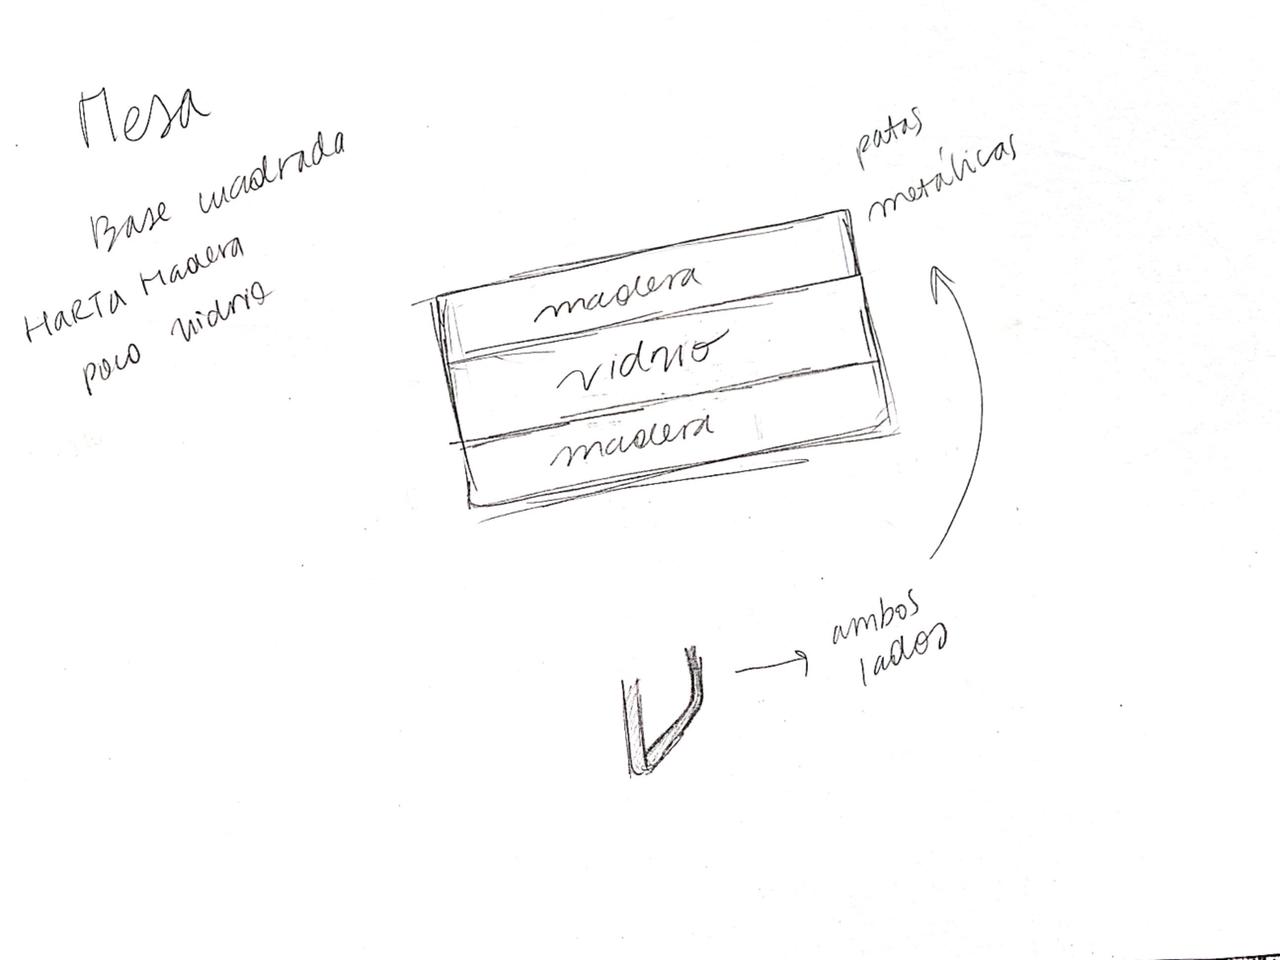 Mesa
Base cuadrada
Harta Madera
poco vidrio
patas
metálicas
madera
vidrio
madera
ambos
lados